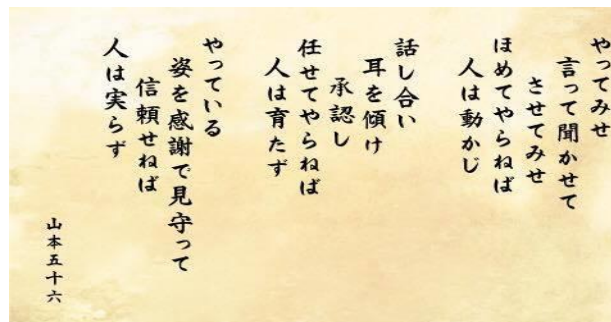 やってみせ
言って聞かせて
させてみせ
ほめてやらねば
人は動かじ
話し合い
耳を傾け
承認し
任せてやらねば
人は育たず
やっている
姿を感謝で見守って
信頼せねば
人は実らず
山本五十六